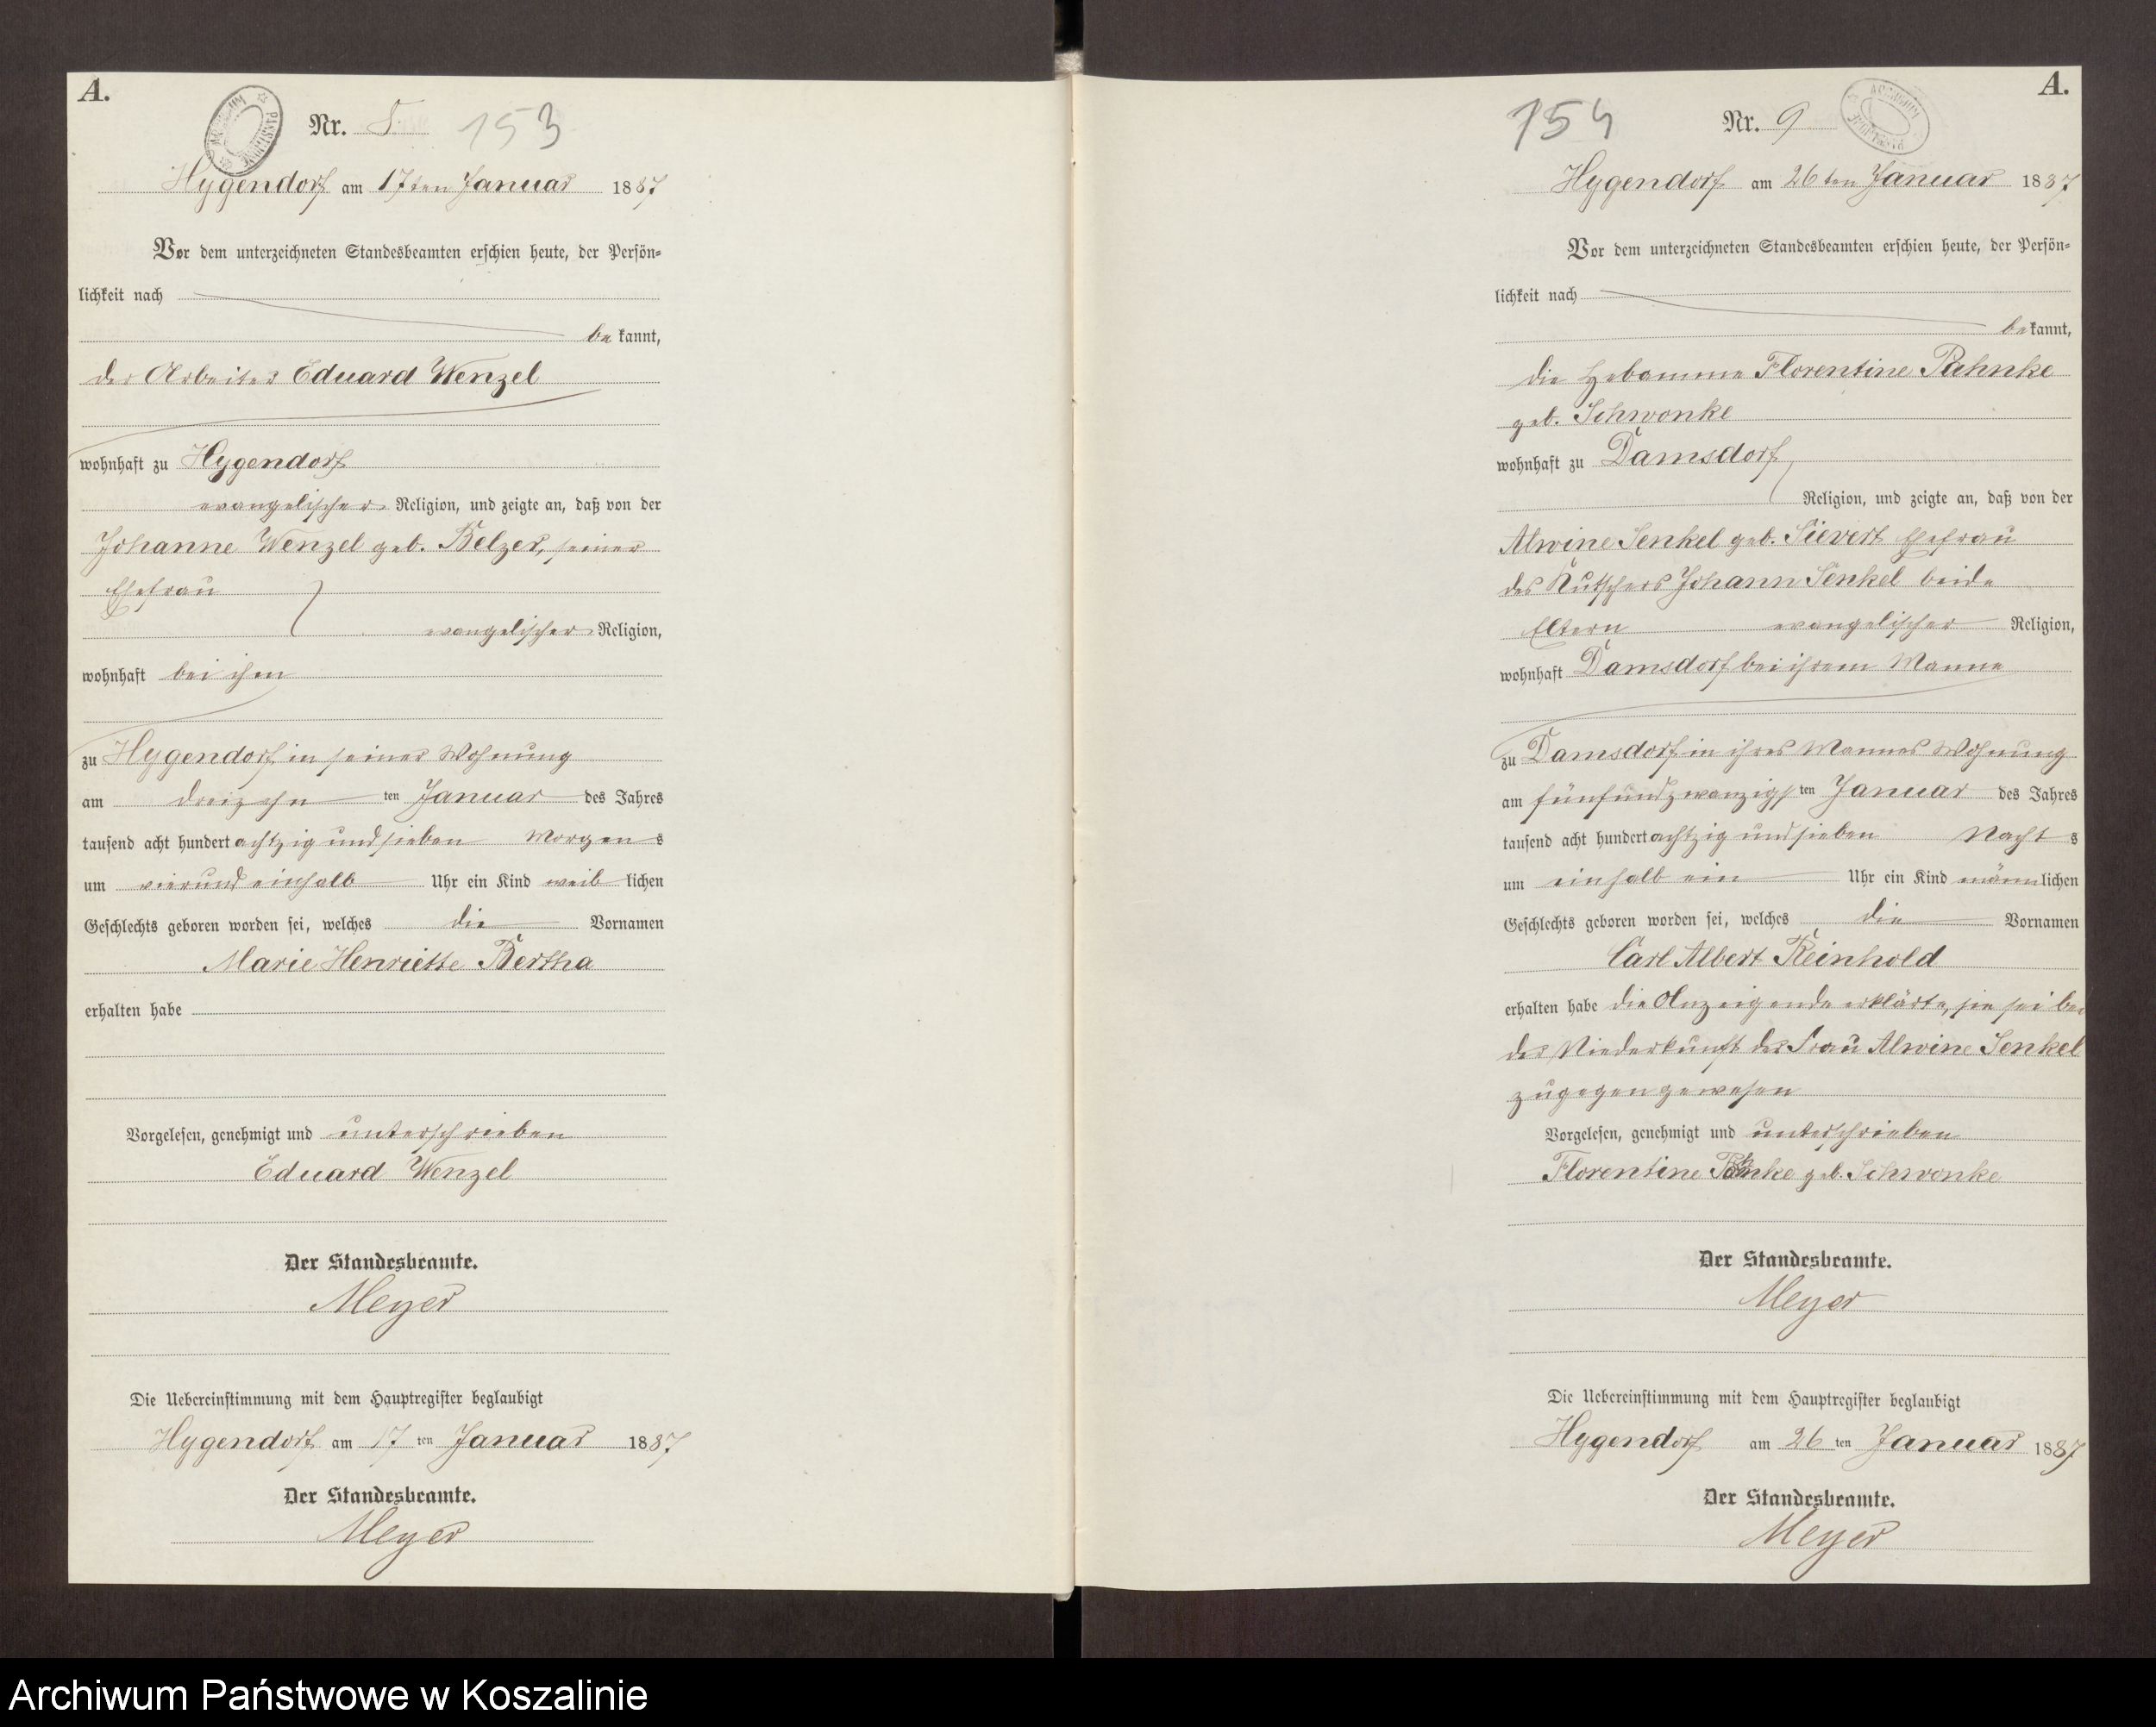 A.
Nr. 8. 153
Hygendorf am 17ten Januar 1887
Vor dem unterzeichneten Standesbeamten erschien heute, der Persön-
lichkeit nach
be kannt,
der Arbeiter Eduard Wenzel
wohnhaft zu Hygendorf
evangelischer Religion, und zeigte an, daß von der
Johanne Wenzel geb. Belzer, seiner
Ehefrau
evangelischer Religion,
wohnhaft bei ihm
zu Hygendorf in seiner Wohnung
am dreizehn ten Januar des Jahres
tausend acht hundert achtzig und sieben Morgen s
um vierundeinhalb Uhr ein Kind weib lichen
Geschlechts geboren worden sei, welches die Vornamen
Marie Henriette Bertha
erhalten habe
Vorgelesen, genehmigt und unterschrieben
Eduard Wenzel
Der Standesbeamte.
Meyer
Die Uebereinstimmung mit dem Hauptregister beglaubigt
Hygendorf am 17 ten Januar 1887
Der Standesbeamte.
Meyer
A.
154 Nr. 9
Hygendorf am 26ten Januar 1887
Vor dem unterzeichneten Standesbeamten erschien heute, der Persön-
lichkeit nach
be kannt,
die Hebamme Florentine Pahnke
geb. Schwonke
wohnhaft zu Damsdorf
Religion, und zeigte an, daß von der
Alwine Senkel geb. Sievert Ehefrau
des Kutschers Johann Senkel beide
Eltern evangelischer Religion,
wohnhaft Damsdorf bei ihrem Manne
zu Damsdorf in ihres Mannes Wohnung
am fünfundzwanzigs ten Januar des Jahres
tausend acht hundert achtzig und sieben Nacht s
um einhalb ein Uhr ein Kind männ lichen
Geschlechts geboren worden sei, welches die Vornamen
Carl Albert Reinhold
erhalten habe die Anzeigende erklärte, sie sei bei
der Niederkunft der Frau Alwine Senkel
zugegen gewesen
Vorgelesen, genehmigt und unterschrieben
Florentine Pahnke geb. Schwonke
Der Standesbeamte.
Meyer
Die Uebereinstimmung mit dem Hauptregister beglaubigt
Hygendorf am 26 ten Januar 1887
Der Standesbeamte.
Meyer
Archiwum Państwowe w Koszalinie